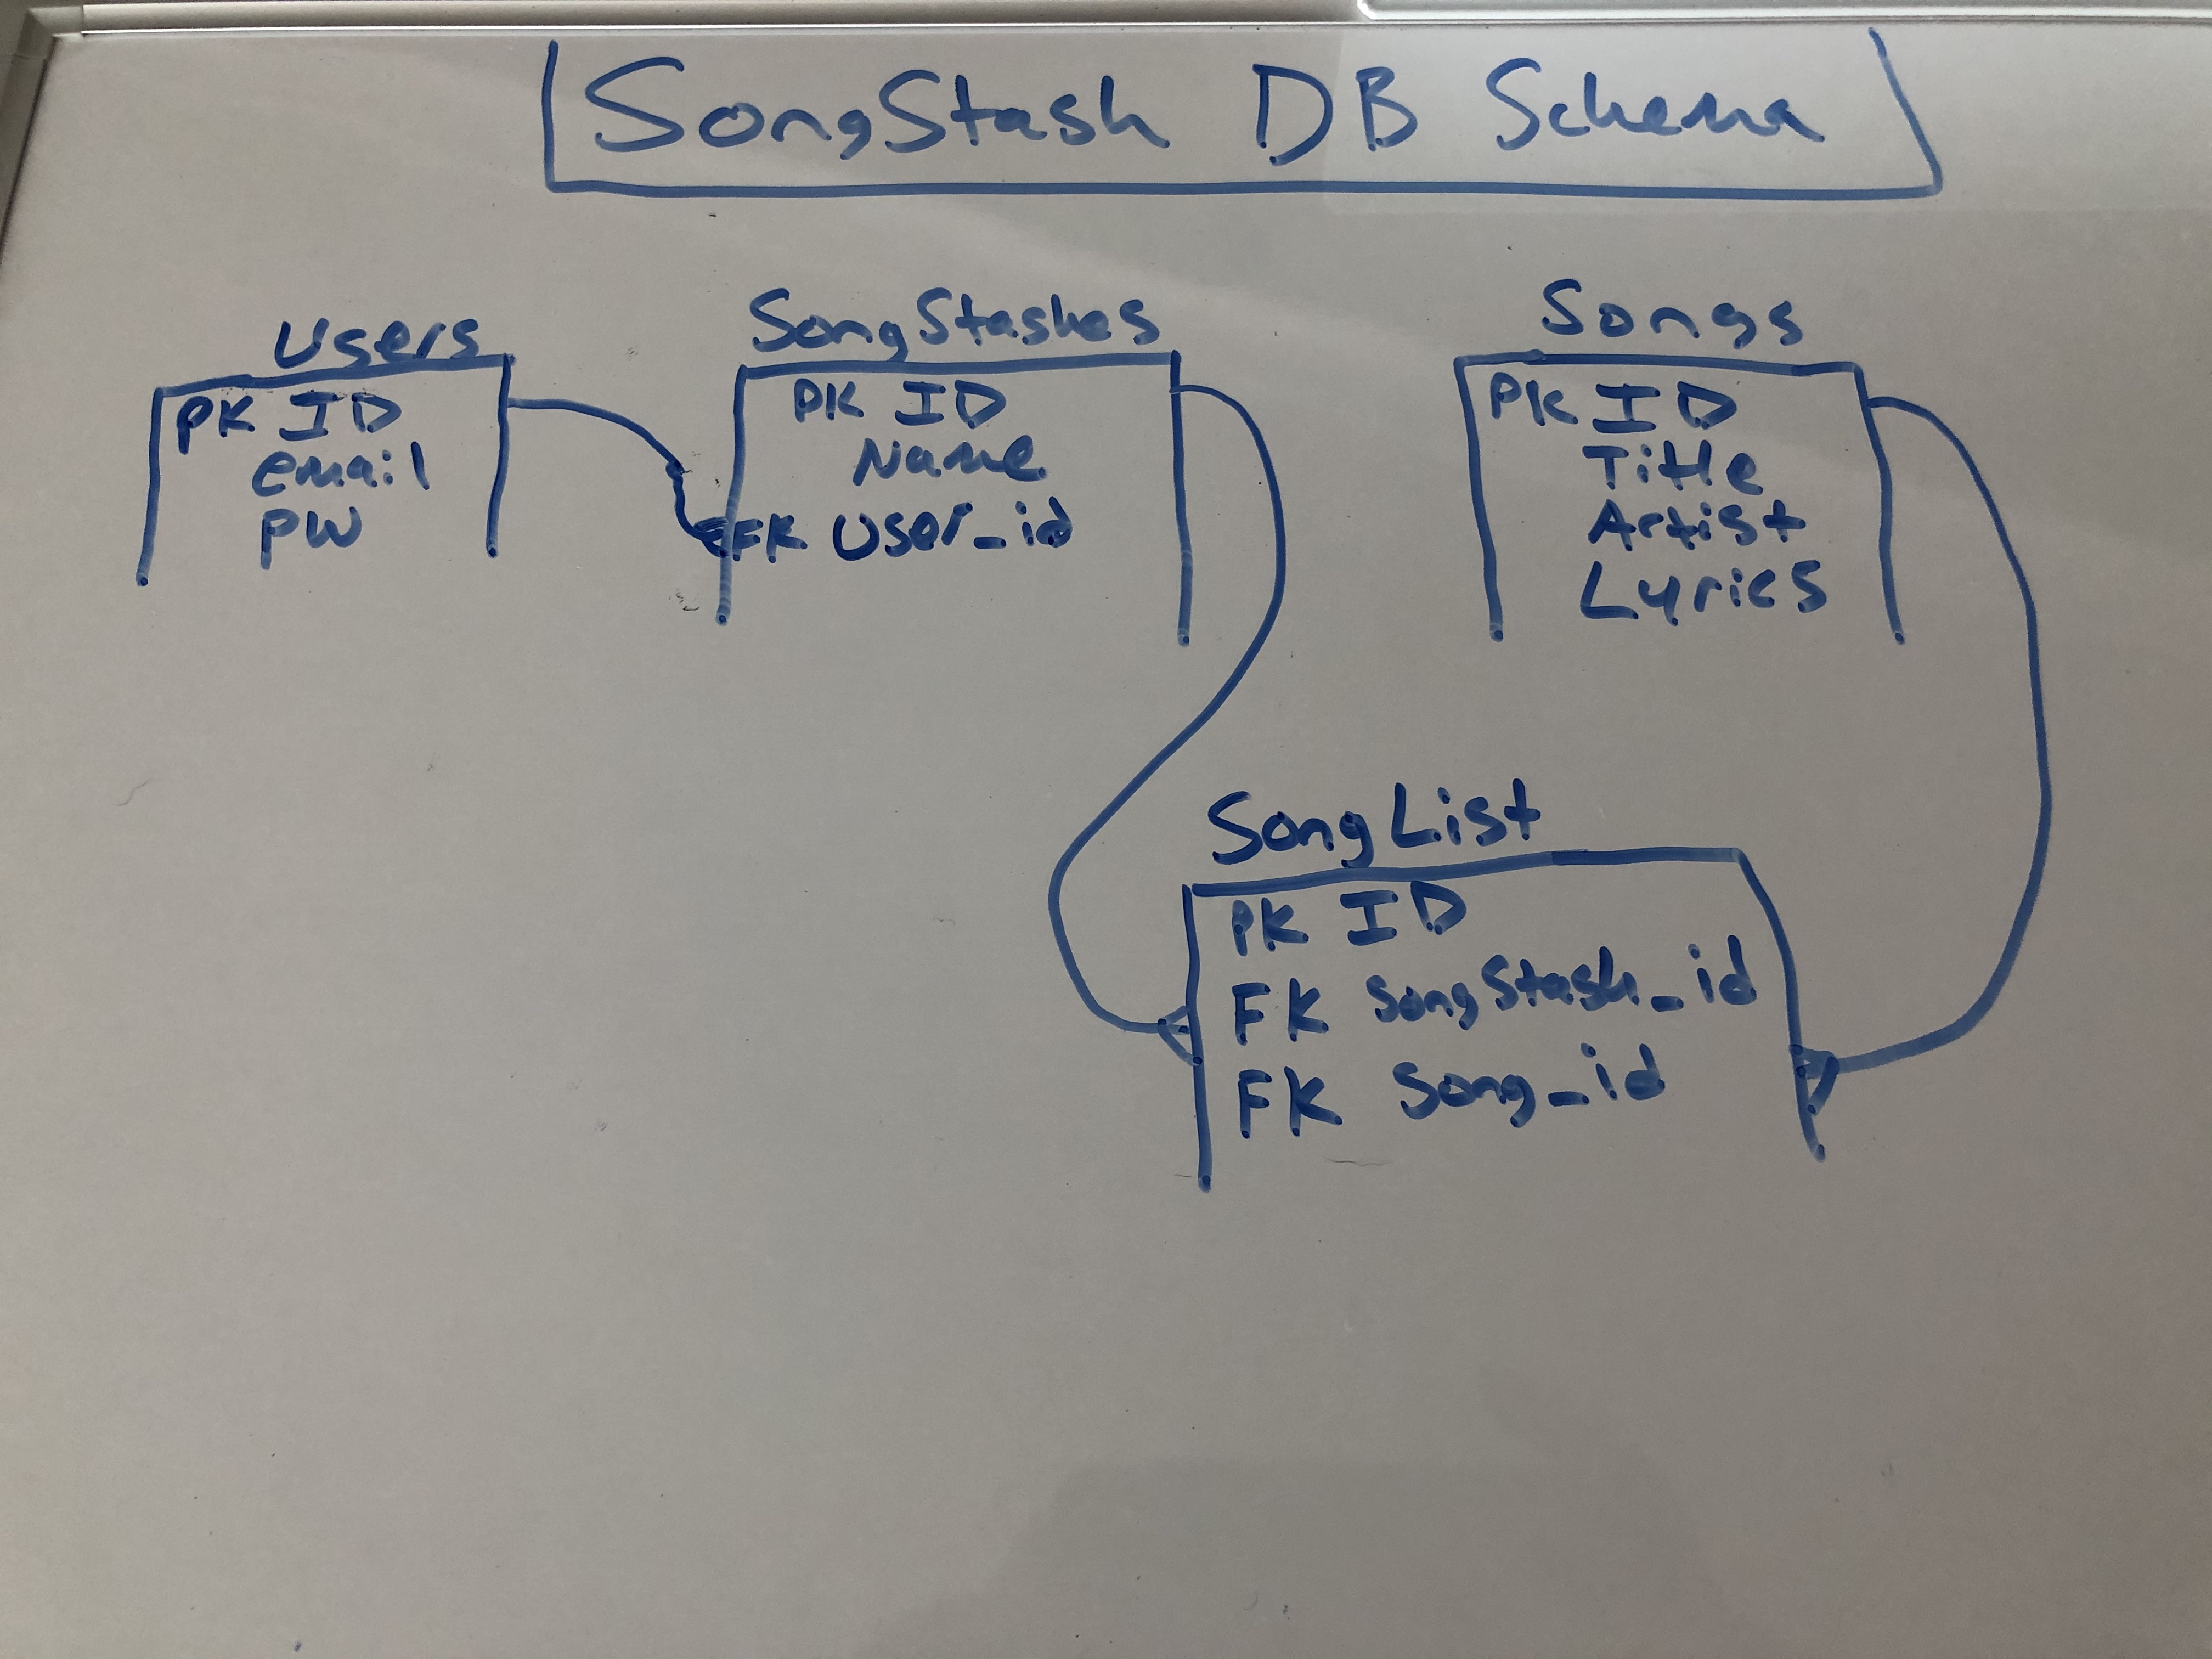 SongStash DB Schema
Users
PK ID
email
PW
SongStashes
PK ID
Name
FK User_id
Songs
PK ID
Title
Artist
Lyrics
SongList
PK ID
FK SongStash_id
FK Song_id